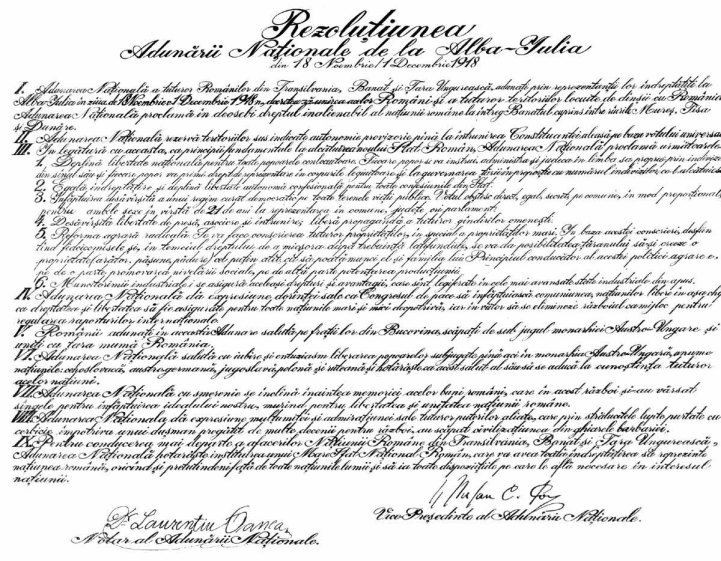 Rezoluțiunea
Adunării Naționale de la Alba-Iulia
din 18 Noembrie/1 Decembrie 1918
I. Adunarea Națională a tuturor Românilor din Transilvania, Banat și Țara Ungurească, adunați prin reprezentanții lor îndreptățiți la
Alba-Iulia în ziua de 18 Noembrie/1 Decembrie 1918, decretează unirea acelor Români și a tuturor teritoriilor locuite de dînșii cu România.
Adunarea Națională proclamă în deosebi dreptul inalienabil al națiunii române la întreg Banatul cuprins între rîurile Mureș, Tisa
și Dunăre.
II. Adunarea Națională rezervă teritoriilor sus indicate autonomie provizorie pînă la întrunirea Constituantei aleasă pe baza votului universal
III. În legătură cu aceasta, ca principii fundamentale la alcătuirea noului Stat Român, Adunarea Națională proclamă următoarele:
1. Deplină libertate națională pentru toate popoarele conlocuitoare. Fiecare popor se va instrui, administra și judeca în limba sa proprie prin indivizi
din sînul său și fiecare popor va primi drept de reprezentare în corpurile legiuitoare și la guvernarea țării în proporție cu numărul indivizilor ce-l
2. Egală îndreptățire și deplină libertate autonomă confesională pentru toate confesiunile din Stat.
3. Înfăptuirea desăvîrșită a unui regim curat democratic pe toate terenele vieții publice. Votul obștesc, direct, egal, secret, pe comune, în mod proporțional,
pentru ambele sexe, în vîrstă de 21 de ani la reprezentarea în comune, județe ori parlament.
4. Desăvîrșită libertate de presă, asociere și întrunire; liberă propagandă a tuturor gîndurilor omenești.
5. Reforma agrară radicală. Se va face conscrierea tuturor proprietăților, în special a proprietăților mari. În baza acestei conscrieri, desființ
înd fideicomisele și, în temeiul dreptului de a micșora după trebuință latifundiile, se va da posibilitatea țăranului să-și creeze o
proprietate (arător, pășune, pădure) cel puțin atît cît să poată munci el și familia lui. Principiul conducător al acestei politici agrare e
pe de o parte promovarea nivelării sociale, pe de altă parte potențarea producțiunii.
6. Muncitorimii industriale i se asigură aceleași drepturi și avantagii, care sînt legiferate în cele mai avansate state industriale din apus.
IV. Adunarea Națională dă expresiune dorinței sale ca Congresul de pace să înfăptuiască comuniunea națiunilor libere în așa chip
ca dreptatea și libertatea să fie asigurate pentru toate națiunile mari și mici deopotrivă, iar în viitor să se elimineze războiul ca mijloc pentru
regularea raporturilor internaționale.
V. Românii adunați în această Adunare salută pe frații lor din Bucovina, scăpați de sub jugul monarhiei Austro-Ungare și
uniți cu țara mumă România.
VI. Adunarea Națională salută cu iubire și entuziasm liberarea popoarelor subjugate pînă aci în monarhia Austro-Ungară, anume
națiunile: cehoslovacă, austro-germană, iugoslavă, polonă și ruteană și hotărăște ca acest salut al său să se aducă la cunoștința tuturor
acelor națiuni.
VII. Adunarea Națională cu smerenie se închină înaintea memoriei acelor buni români, care în acest război și-au vărsat
sîngele pentru înfăptuirea idealului nostru, murind pentru libertatea și unitatea națiunii române.
VIII. Adunarea Națională dă expresiune mulțumitei și admirațiunei sale tuturor puterilor aliate, care prin strălucitele lupte purtate cu
cerbicie împotriva unui dușman pregătit de multe decenii pentru război, au scăpat civilizațiunea din ghiarele barbariei.
IX. Pentru conducerea mai departe a afacerilor Națiunii Române din Transilvania, Banat și Țara Ungurească,
Adunarea Națională hotărăște instituirea unui Mare Sfat Național Român, care va avea toată îndreptățirea să reprezinte
națiunea română, oricînd și pretutindeni față de toate națiunile lumii și să ia toate dispozițiile pe care le află necesare în interesul
națiunii.
Ștefan C. Pop
Vice Președinte al Adunării Naționale.
Dr Laurențiu Oanea
Notar al Adunării Naționale.